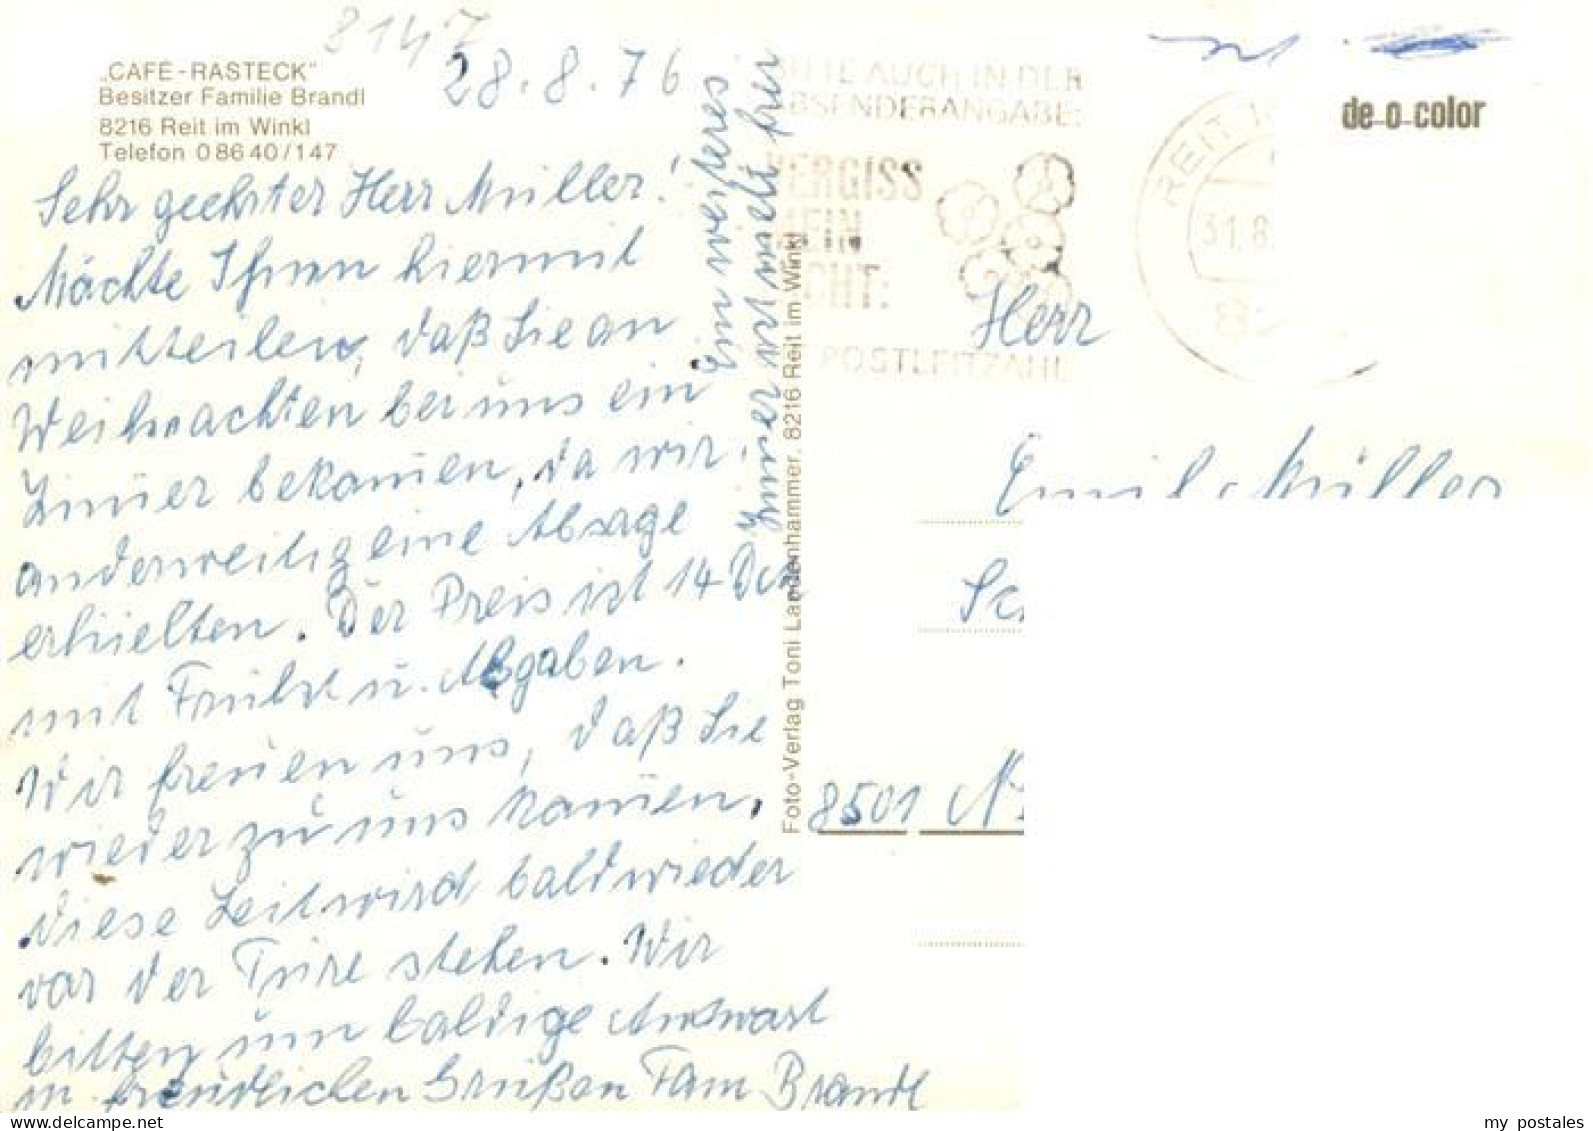 8147
28.8.76
„CAFE-RASTECK"
Besitzer Familie Brandl
8216 Reit im Winkl
Telefon 0 86 40 / 147
Sehr geehrter Herr Müller!
Möchte Ihnen hiermit
mitteilen, daß Sie an
Weihnachten bei uns ein
Zimmer bekommen, da wir
anderweitig eine Absage
erhielten. Der Preis ist 14 DM
mit Frühst u. Abgaben.
Wir freuen uns, daß Sie
wieder zu uns kommen,
diese Zeit wird bald wieder
vor der Türe stehen. Wir
bitten um baldige Antwort
m. freundlichen Grüßen Fam Brandl
Ein weiteres
Zimmer ist frei
Foto-Verlag Toni Landenhammer, 8216 Reit im Winkl
BITTE AUCH IN DER
ABSENDERANGABE:
VERGISS
MEIN
NICHT:
POSTLEITZAHL
REIT
31.8.
de-o-color
Herr
Emil Müller
8501
my postales